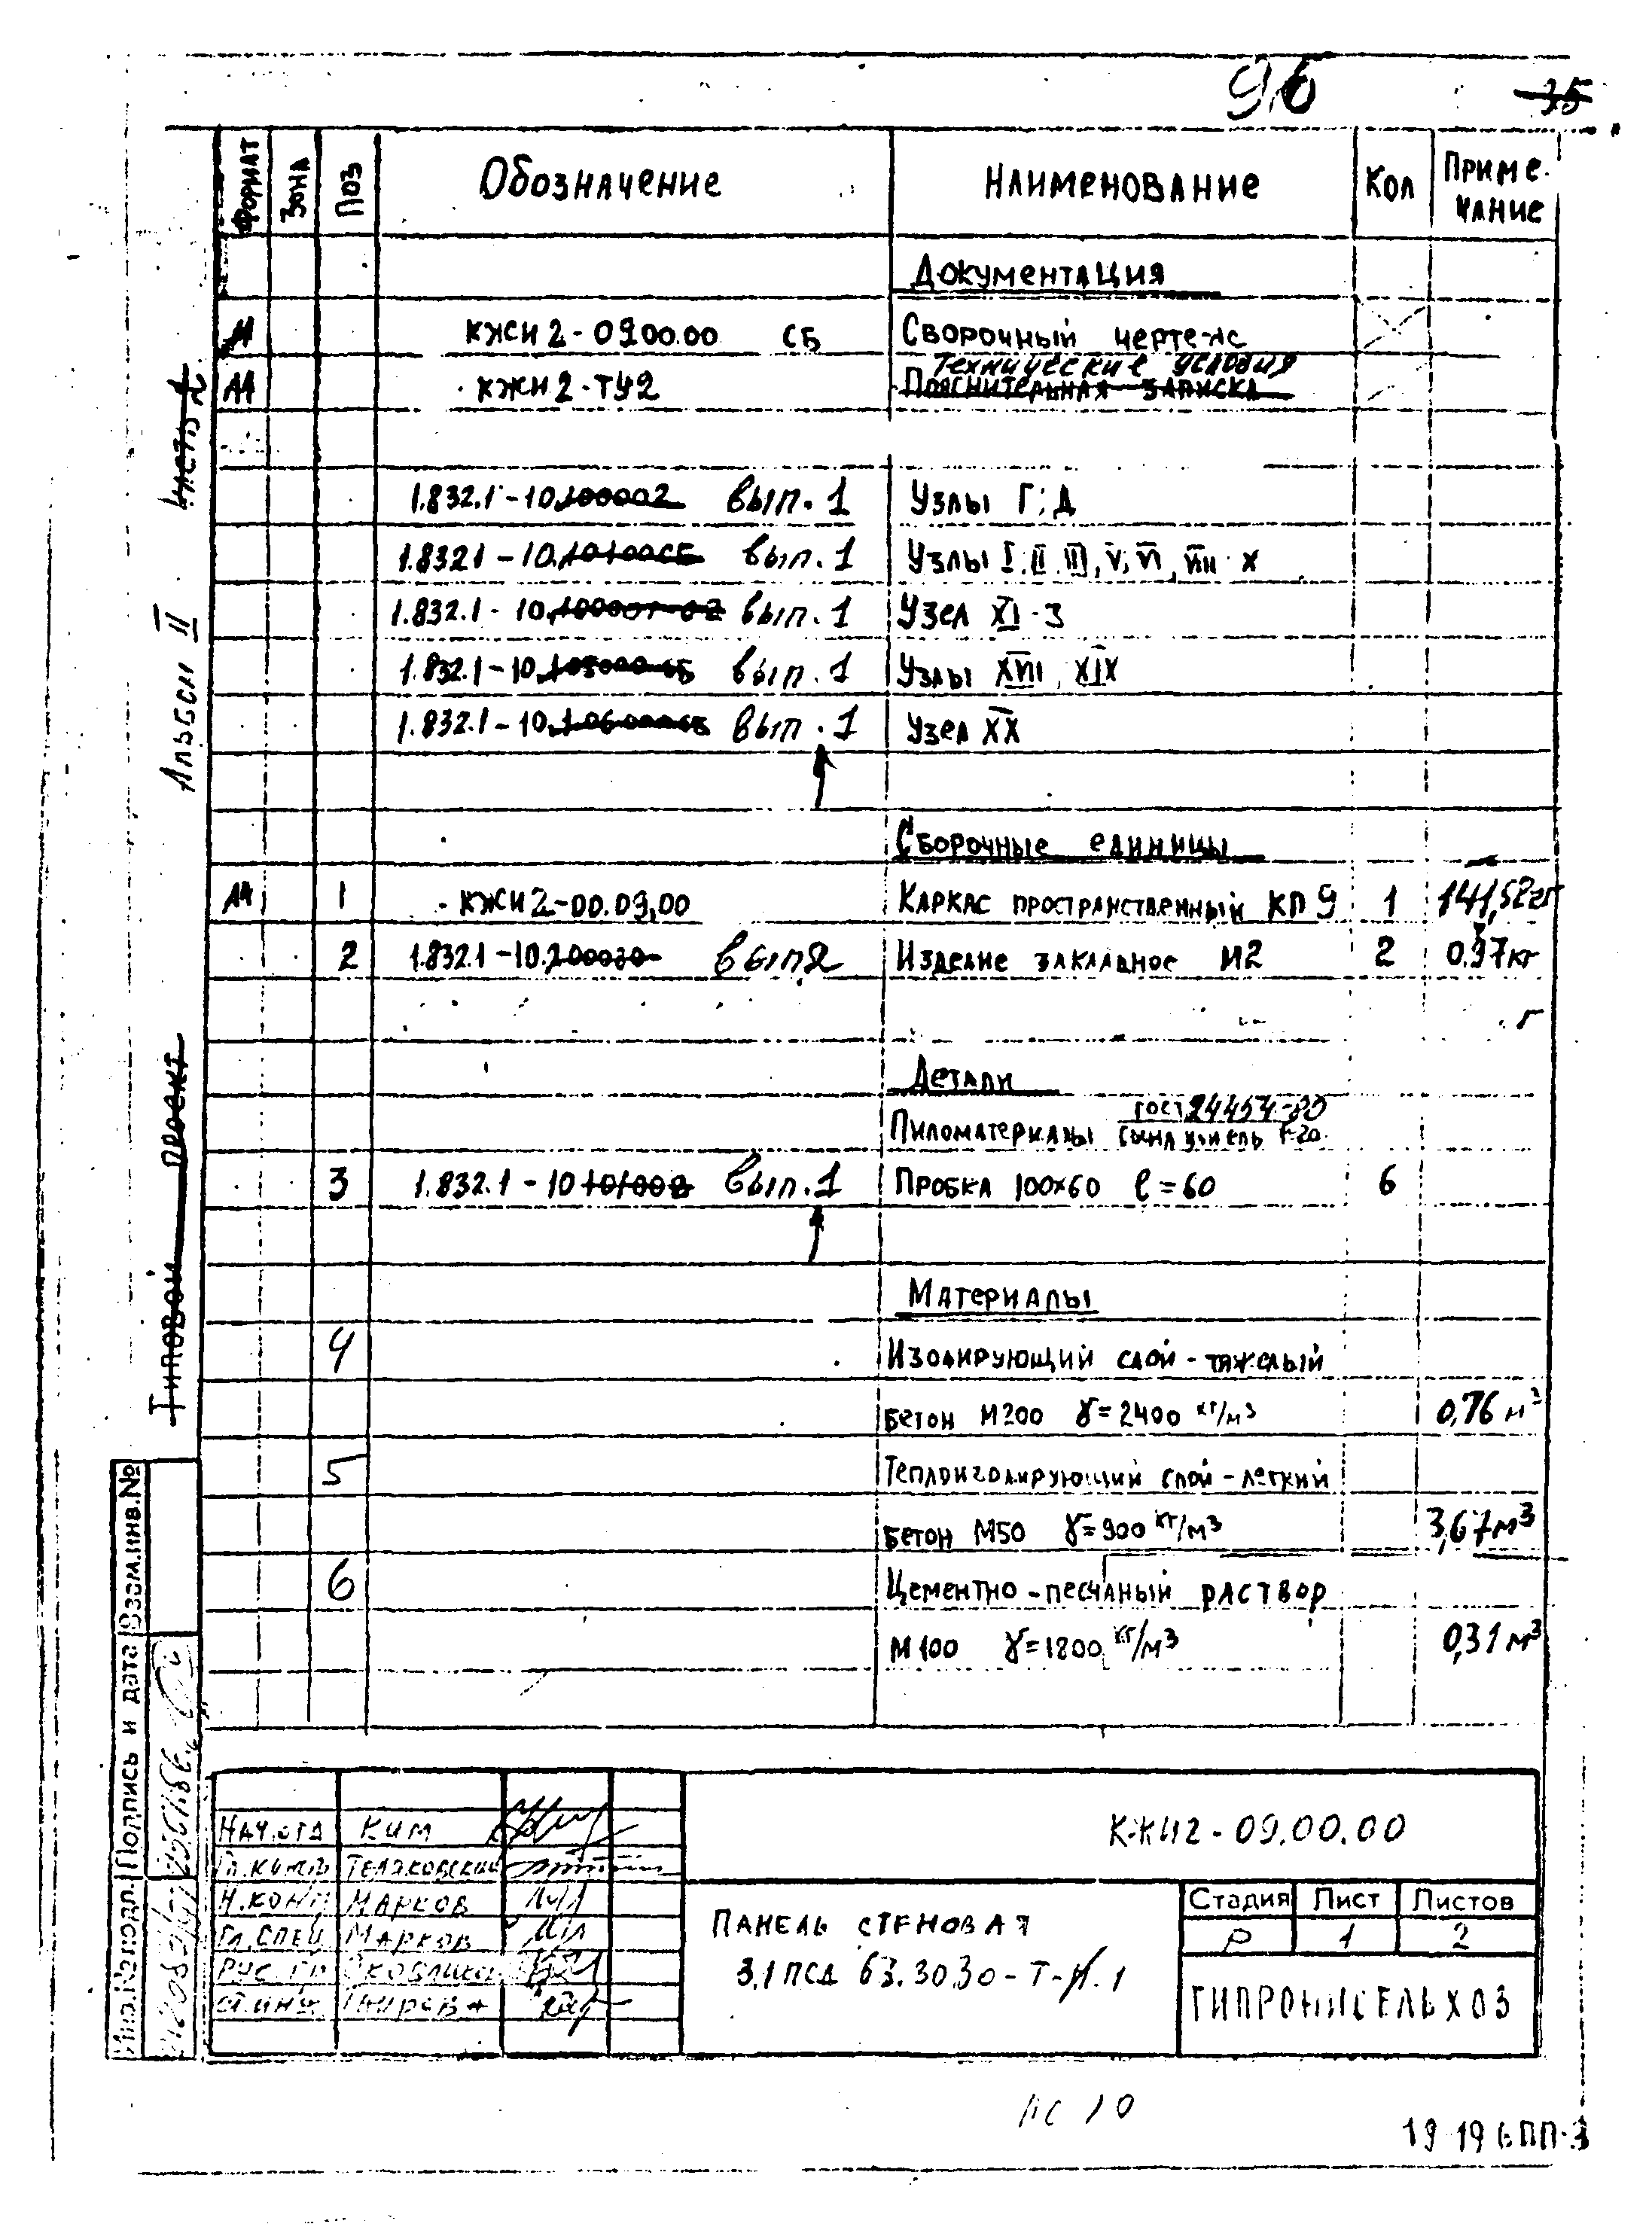 96 35
Формат Зона Поз Обозначение Наименование Кол Приме-
чание
Документация
КЖИ2-09.00.00 СБ Сборочный чертеж
Технические условия
А4 КЖИ2-ТУ2 Пояснительная записка
1.832.1-10.100002 вып.1 Узлы Г; Д
1.832.1-10.10100СБ вып.1 Узлы I, II, III, V, VI, VIII-X
1.832.1-10. вып.1 Узел XI-3
1.832.1-10. вып.1 Узлы XVII, XIX
1.832.1-10. вып.1 Узел XX
Сборочные единицы
А4 1 КЖИ2-00.09.00 Каркас пространственный КП9 1 141,52кг
2 1.832.1-10.200030 вып2 Изделие закладное М2 2 0,97кг
Детали
Пиломатериалы ГОСТ 24454-80
3 1.832.1-10 вып.1 Пробка 100×60 ℓ=60 6
Материалы
4 Изолирующий слой-тяжелый
бетон М200 γ=2400 кг/м³ 0,76 м³
5 Теплоизолирующий слой-легкий
бетон М50 γ=900 кг/м³ 3,67м³
6 Цементно-песчаный раствор
М100 γ=1800 кг/м³ 0,31м³
Часть 2
Альбом II
Типовой проект
Взам.инв.№
Подпись и дата
Инв.№подл.
КЖИ2-09.00.00
Нач.отд Ким
Теляковский
Н.конт Марков
Гл.спец Марков
Рук.гр
Ст.инж
Панель стеновая
3.1ПСД 63.30.30-Т-.1
Стадия Лист Листов
Р 1 2
Гипронисельхоз
19196ПП-3